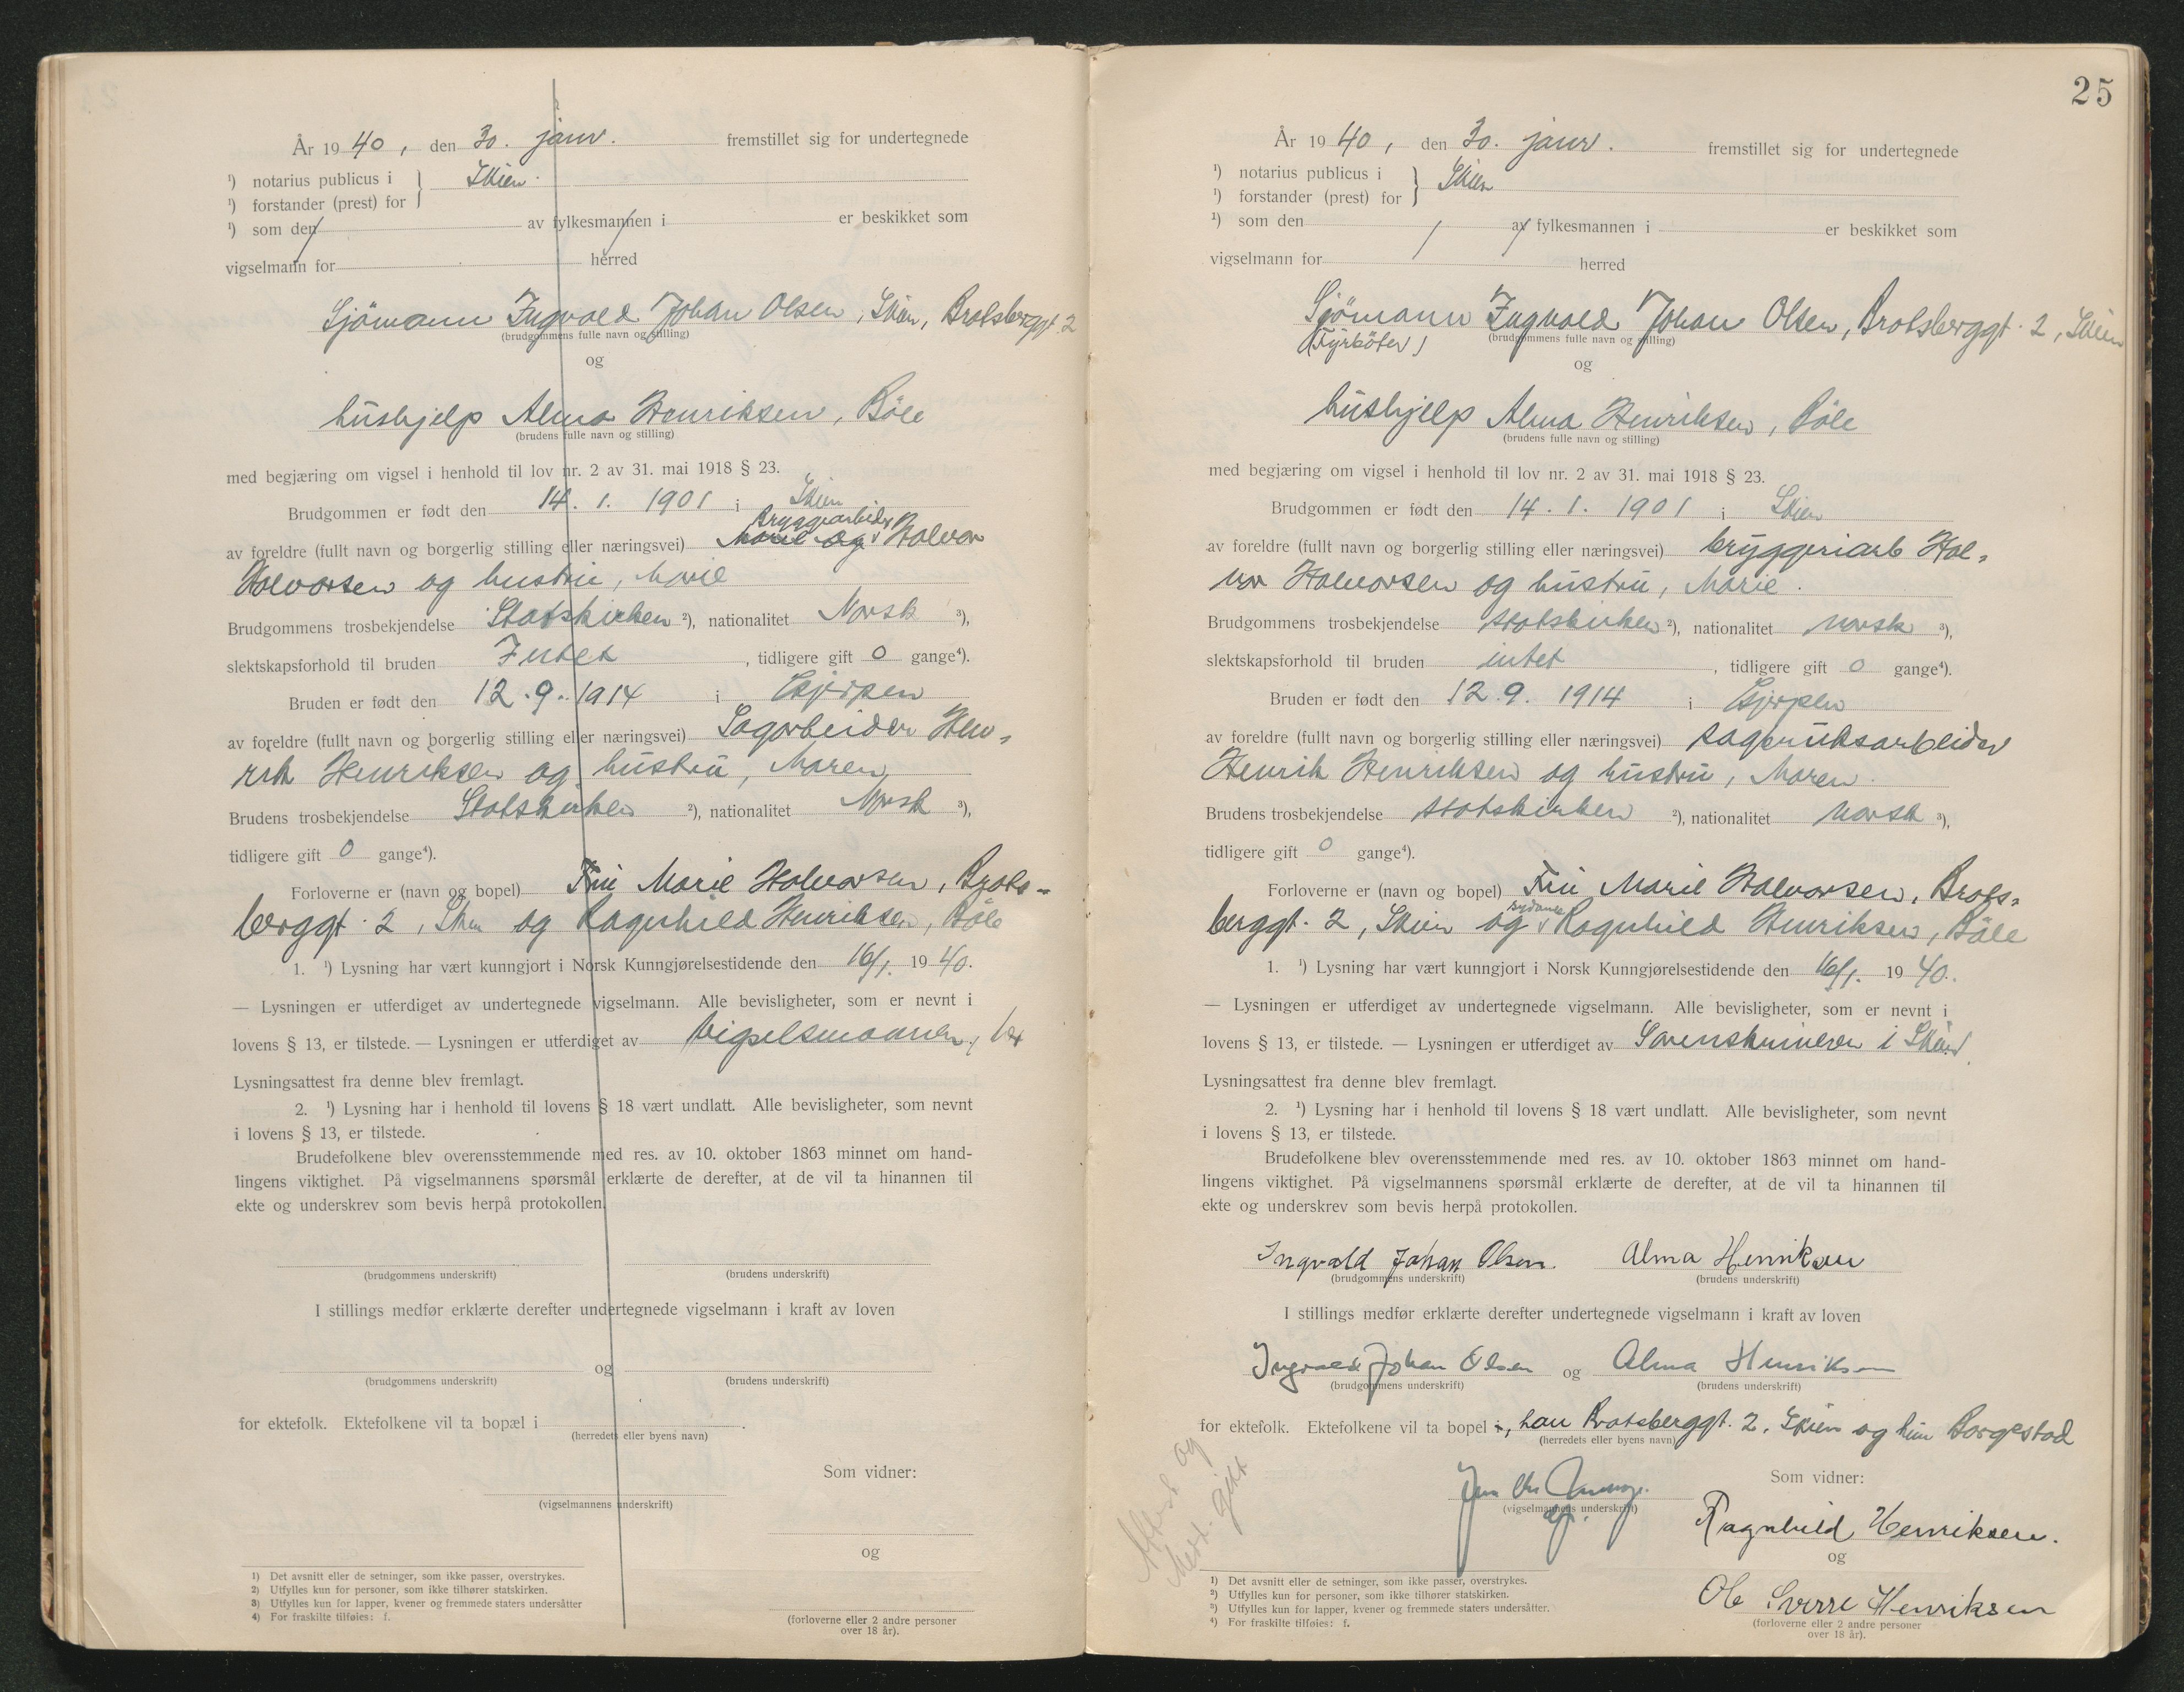 År 1940, den 30. janr. fremstillet sig for undertegnede
¹) notarius publicus i } Skien
¹) forstander (prest) for
¹) som den av fylkesmannen i er beskikket som
vigselmann for herred
Sjömann Ingvald Johan Olsen, Skien, Bratsberggt. 2
(brudgommens fulle navn og stilling)
og
hushjelp Alma Henriksen, Böle
(brudens fulle navn og stilling)
med begjæring om vigsel i henhold til lov nr. 2 av 31. mai 1918 § 23.
Brudgommen er født den 14. 1. 1901 i Skien
Bryggearbeider
av foreldre (fullt navn og borgerlig stilling eller næringsvei) Marie og Halvor
Halvorsen og hustru, Marie
Brudgommens trosbekjendelse Statskirken ²), nationalitet Norsk ³),
slektskapsforhold til bruden Intet, tidligere gift 0 gange⁴).
Bruden er født den 12. 9. 1914 i Gjerpen
av foreldre (fullt navn og borgerlig stilling eller næringsvei) Sagarbeider Hen-
rik Henriksen og hustru, Maren
Brudens trosbekjendelse Statskirken ²), nationalitet Norsk ³),
tidligere gift 0 gange⁴).
Forloverne er (navn og bopel) Fru Marie Halvorsen, Brats-
berggt. 2, Skien og Ragnhild Henriksen, Böle
1. ¹) Lysning har vært kunngjort i Norsk Kunngjørelsestidende den 16/1. 1940.
— Lysningen er utferdiget av undertegnede vigselmann. Alle bevisligheter, som er nevnt i
lovens § 13, er tilstede. — Lysningen er utferdiget av vigselsmannen,
Lysningsattest fra denne blev fremlagt.
2. ¹) Lysning har i henhold til lovens § 18 vært undlatt. Alle bevisligheter, som nevnt
i lovens § 13, er tilstede.
Brudefolkene blev overensstemmende med res. av 10. oktober 1863 minnet om hand-
lingens viktighet. På vigselmannens spørsmål erklærte de derefter, at de vil ta hinannen til
ekte og underskrev som bevis herpå protokollen.
(brudgommens underskrift) (brudens underskrift)
I stillings medfør erklærte derefter undertegnede vigselmann i kraft av loven
og
(brudgommens underskrift) (brudens underskrift)
for ektefolk. Ektefolkene vil ta bopæl i .
(herredets eller byens navn)
Som vidner:
(vigselmannens underskrift)
og
¹) Det avsnitt eller de setninger, som ikke passer, overstrykes.
²) Utfylles kun for personer, som ikke tilhører statskirken.
³) Utfylles kun for lapper, kvener og fremmede staters undersåtter
⁴) For fraskilte tilføies: f.
(forloverne eller 2 andre personer
over 18 år).
25
År 1940, den 30. janr. fremstillet sig for undertegnede
¹) notarius publicus i } Skien
¹) forstander (prest) for
¹) som den av fylkesmannen i er beskikket som
vigselmann for herred
Sjömann Ingvald Johan Olsen, Bratsberggt. 2, Skien
(Fyrböter)
(brudgommens fulle navn og stilling)
og
hushjelp Alma Henriksen, Böle
(brudens fulle navn og stilling)
med begjæring om vigsel i henhold til lov nr. 2 av 31. mai 1918 § 23.
Brudgommen er født den 14. 1. 1901 i Skien
av foreldre (fullt navn og borgerlig stilling eller næringsvei) bryggeriarb Hal-
vor Halvorsen og hustru, Marie.
Brudgommens trosbekjendelse statskirken ²), nationalitet norsk ³),
slektskapsforhold til bruden intet, tidligere gift 0 gange⁴).
Bruden er født den 12. 9. 1914 i Gjerpen
av foreldre (fullt navn og borgerlig stilling eller næringsvei) sagbruksarbeider
Henrik Henriksen og hustru, Maren.
Brudens trosbekjendelse statskirken ²), nationalitet norsk ³),
tidligere gift 0 gange⁴).
Forloverne er (navn og bopel) Fru Marie Halvorsen, Brats-
berggt. 2, Skien og Ragnhild Henriksen, Böle
1. ¹) Lysning har vært kunngjort i Norsk Kunngjørelsestidende den 16/1. 1940.
— Lysningen er utferdiget av undertegnede vigselmann. Alle bevisligheter, som er nevnt i
lovens § 13, er tilstede. — Lysningen er utferdiget av Sorenskriveren i Skien
Lysningsattest fra denne blev fremlagt.
2. ¹) Lysning har i henhold til lovens § 18 vært undlatt. Alle bevisligheter, som nevnt
i lovens § 13, er tilstede.
Brudefolkene blev overensstemmende med res. av 10. oktober 1863 minnet om hand-
lingens viktighet. På vigselmannens spørsmål erklærte de derefter, at de vil ta hinannen til
ekte og underskrev som bevis herpå protokollen.
Ingvald Johan Olsen. Alma Henriksen
(brudgommens underskrift) (brudens underskrift)
I stillings medfør erklærte derefter undertegnede vigselmann i kraft av loven
Ingvald Johan Olsen og Alma Henriksen
(brudgommens underskrift) (brudens underskrift)
for ektefolk. Ektefolkene vil ta bopel i, han Bratsberggt. 2, Skien og hun Borgestad
(herredets eller byens navn)
Som vidner:
(vigselmannens underskrift)
Ragnhild Henriksen.
og
Ole Sverre Henriksen
Attest og
medd. gitt
¹) Det avsnitt eller de setninger, som ikke passer, overstrykes.
²) Utfylles kun for personer, som ikke tilhører statskirken.
³) Utfylles kun for lapper, kvener og fremmede staters undersåtter.
⁴) For fraskilte tilføies: f.
(forloverne eller 2 andre personer
over 18 år).